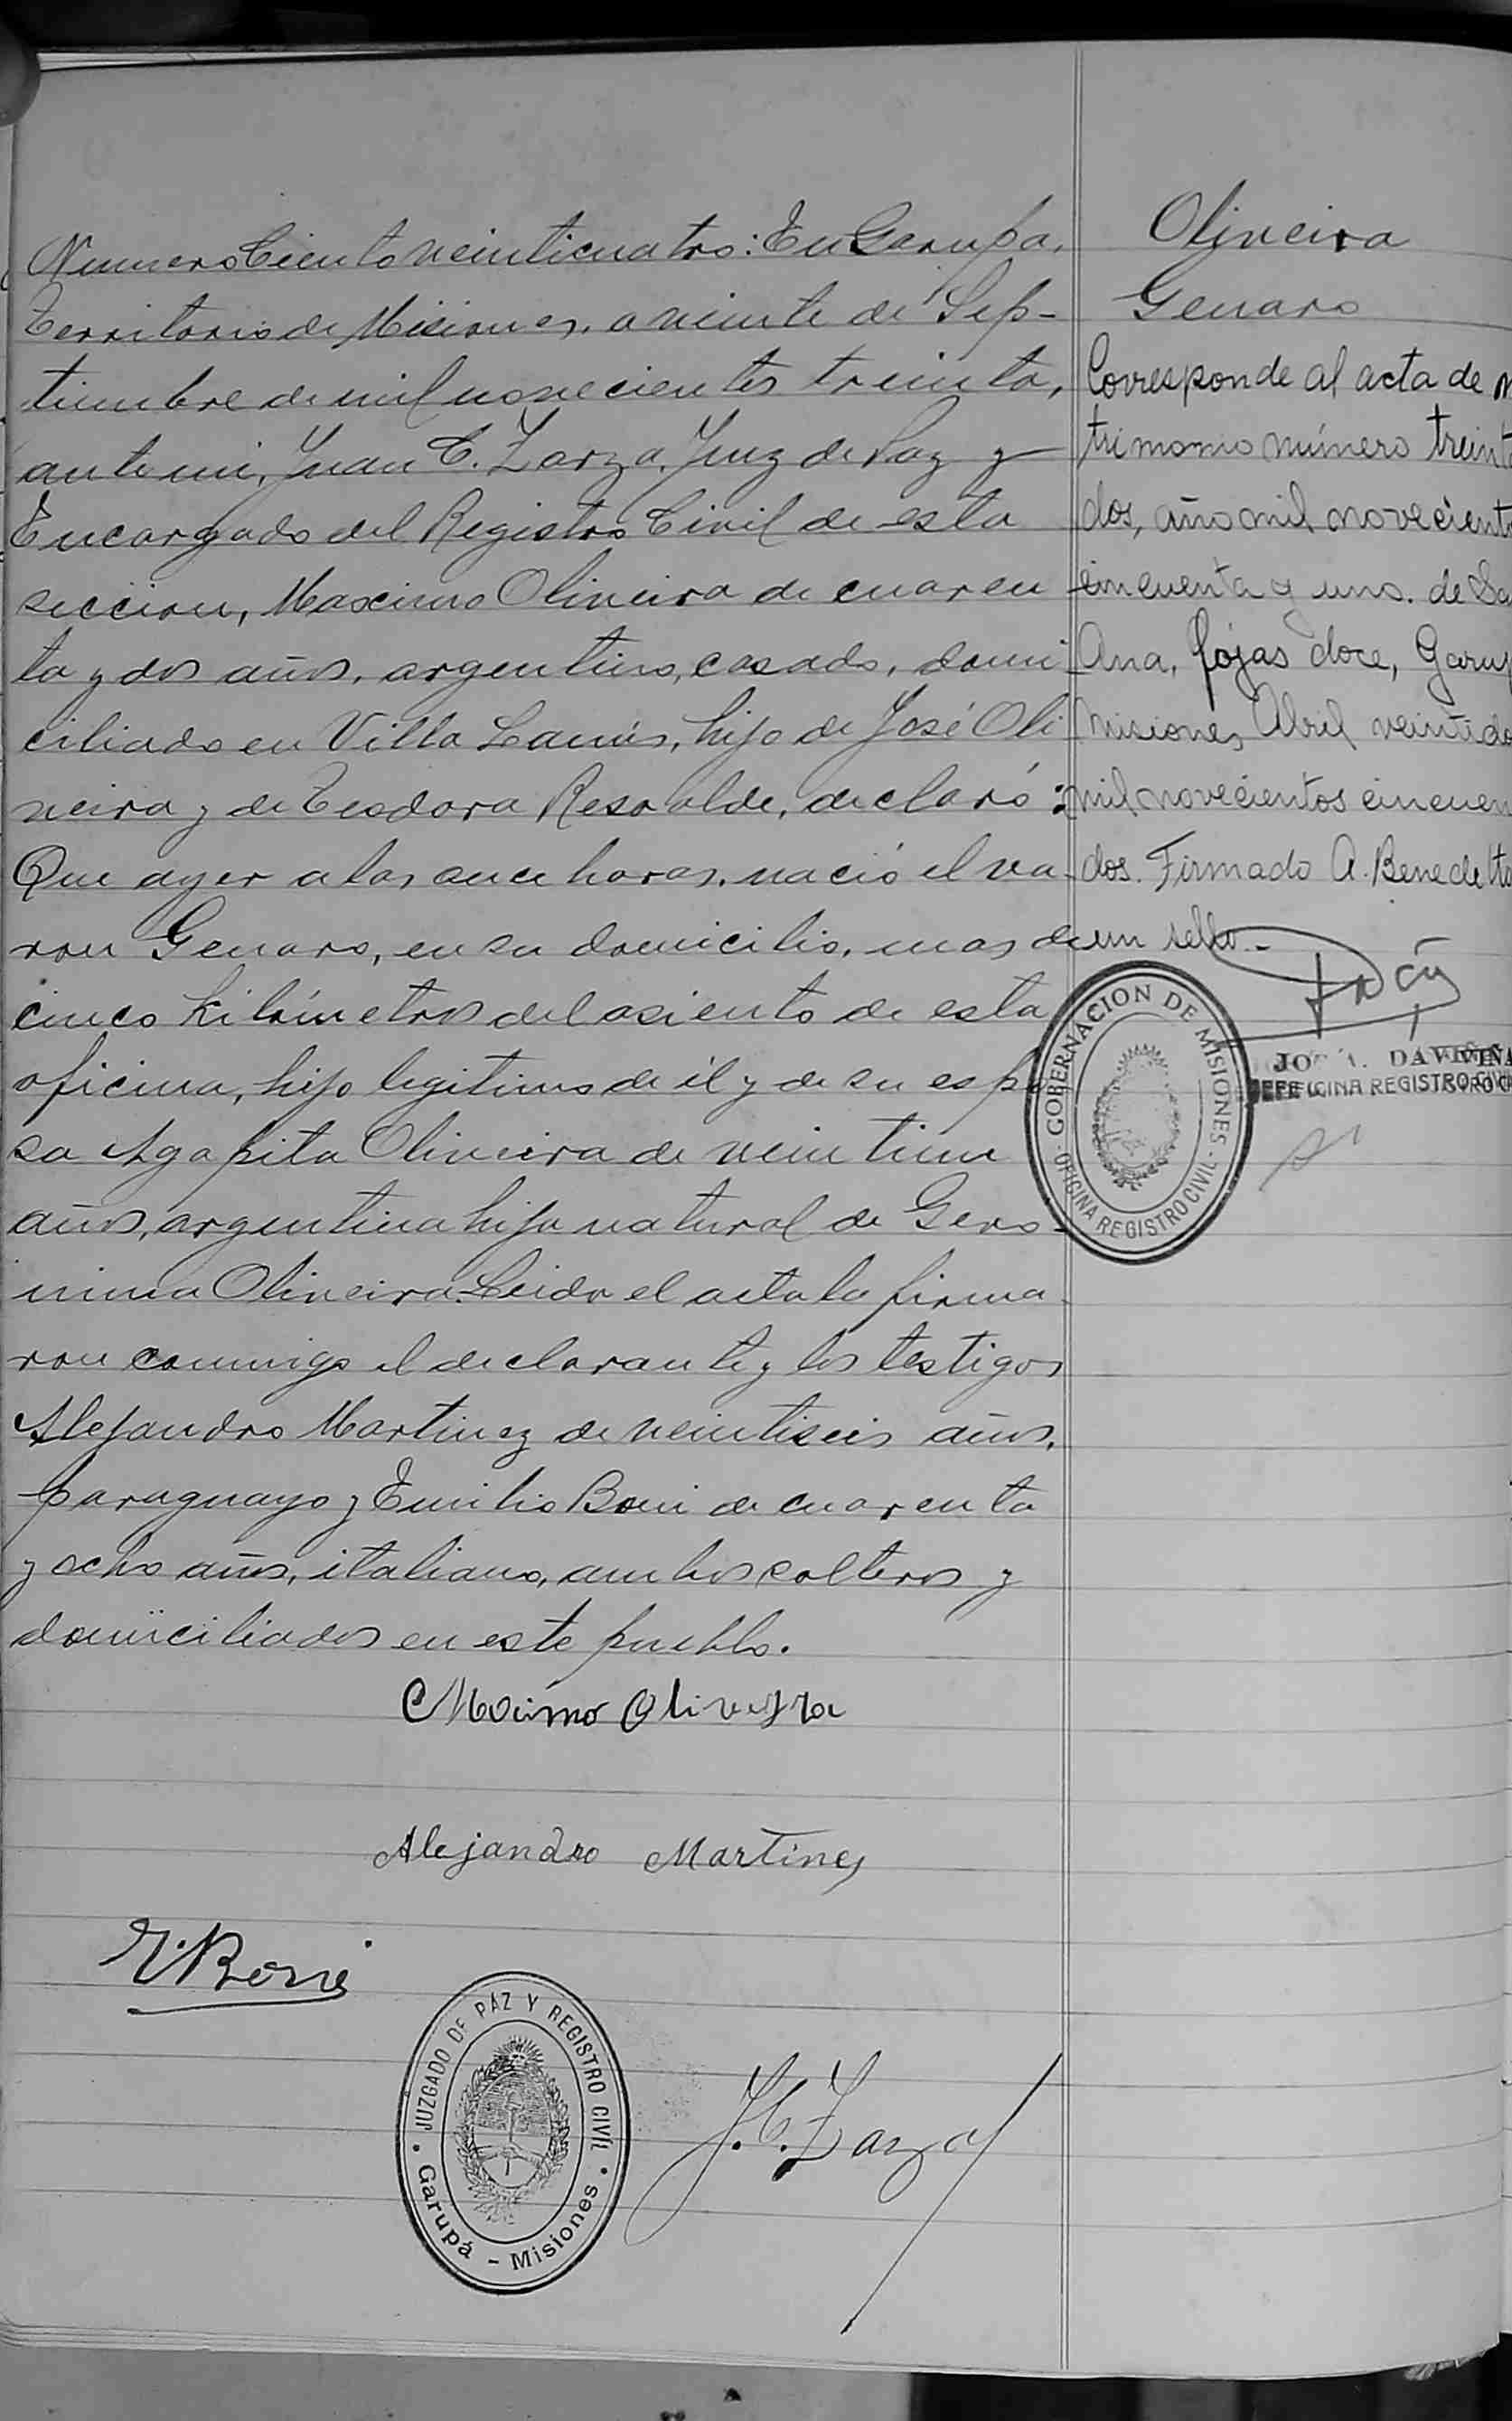 Numero Ciento veinticuatro: En Garupa,
Territorio de Misiones, a veinte de Sep-
tiembre de mil novecientos treinta,
ante mi, Juan C. Zarza, Juez de Paz y
Encargado del Registro Civil de esta
seccion, Maximo Oliveira de cuaren
ta y dos años, argentino, casado, domi
ciliado en Villa Lanús, hijo de José Oli
veira y de Teodora Resoalde, declaró:
Que ayer a las once horas, nació el va-
ron Genaro, en su domicilio, mas de
cinco kilómetros del asiento de esta
oficina, hijo legitimo de él y de su espo
sa Agapita Oliveira de veintiun
años, argentina hija natural de Gero-
nima Oliveira. Leida el acta la firma
ron conmigo el declarante y los testigos
Alejandro Martinez de veintiseis años,
paraguayo y Emilio Boni de cuarenta
y ocho años, italiano, ambos solteros y
domiciliados en este pueblo.
Macimo Oliveyra
Alejandro Martinez
E. Boni
JUZGADO DE PAZ Y REGISTRO CIVIL
Garupá - Misiones
J. C. Zarza
Oliveira
Genaro
Corresponde al acta de m
trimonio número treint
dos, año mil noveciento
cincuenta y uno. de Sa
Ana, fojas doce, Garup
Misiones Abril veintido
mil novecientos cincuen
dos. Firmado A. Benedetto
un sello.-
GOBERNACION DE MISIONES
OFICINA REGISTRO CIVIL
DAVIÑA
JEFE OFICINA REGISTRO CIVIL